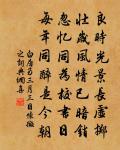 良時光景長虛擲
壯歲風情已暗銷
忽憶同為校書日
每年同醉是今朝
白居易三月三日懷微
之詞典網